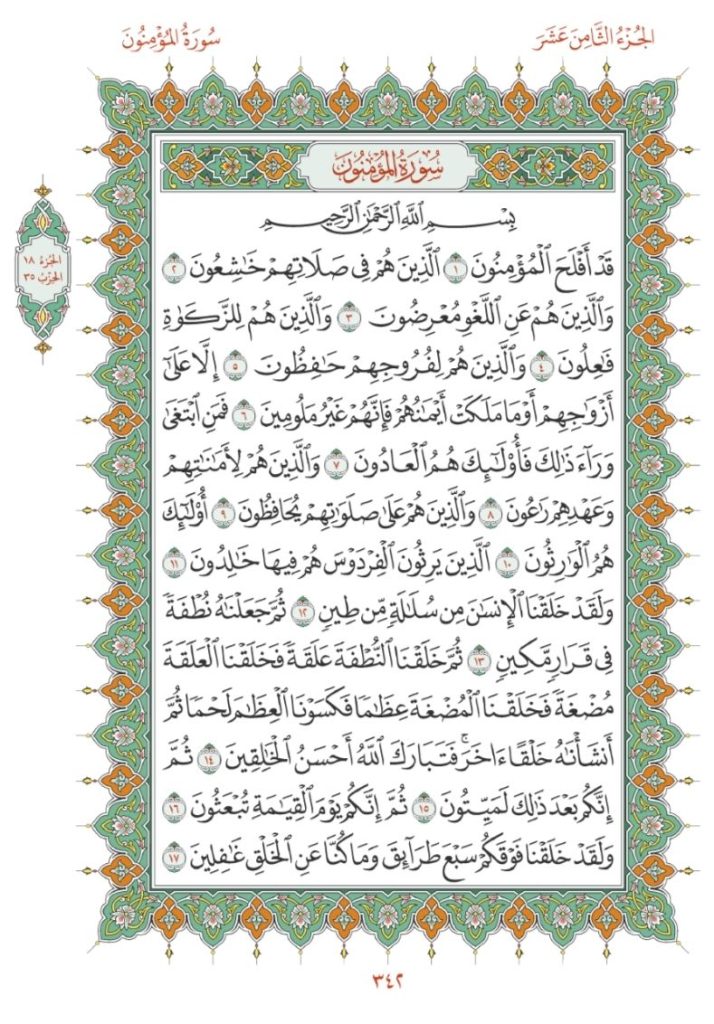 الجُزْءُ الثَّامِنَ عَشَرَ
سُورَةُ المُؤْمِنُونَ
سُورَةُ المُؤْمِنُونَ
بِسْمِ ٱللَّهِ ٱلرَّحْمَٰنِ ٱلرَّحِيمِ
قَدْ أَفْلَحَ ٱلْمُؤْمِنُونَ ١ ٱلَّذِينَ هُمْ فِى صَلَاتِهِمْ خَٰشِعُونَ ٢
وَٱلَّذِينَ هُمْ عَنِ ٱللَّغْوِ مُعْرِضُونَ ٣ وَٱلَّذِينَ هُمْ لِلزَّكَوٰةِ
فَٰعِلُونَ ٤ وَٱلَّذِينَ هُمْ لِفُرُوجِهِمْ حَٰفِظُونَ ٥ إِلَّا عَلَىٰٓ
أَزْوَٰجِهِمْ أَوْ مَا مَلَكَتْ أَيْمَٰنُهُمْ فَإِنَّهُمْ غَيْرُ مَلُومِينَ ٦ فَمَنِ ٱبْتَغَىٰ
وَرَآءَ ذَٰلِكَ فَأُو۟لَٰٓئِكَ هُمُ ٱلْعَادُونَ ٧ وَٱلَّذِينَ هُمْ لِأَمَٰنَٰتِهِمْ
وَعَهْدِهِمْ رَٰعُونَ ٨ وَٱلَّذِينَ هُمْ عَلَىٰ صَلَوَٰتِهِمْ يُحَافِظُونَ ٩ أُو۟لَٰٓئِكَ
هُمُ ٱلْوَٰرِثُونَ ١٠ ٱلَّذِينَ يَرِثُونَ ٱلْفِرْدَوْسَ هُمْ فِيهَا خَٰلِدُونَ ١١
وَلَقَدْ خَلَقْنَا ٱلْإِنسَٰنَ مِن سُلَٰلَةٍ مِّن طِينٍ ١٢ ثُمَّ جَعَلْنَٰهُ نُطْفَةً
فِى قَرَارٍ مَّكِينٍ ١٣ ثُمَّ خَلَقْنَا ٱلنُّطْفَةَ عَلَقَةً فَخَلَقْنَا ٱلْعَلَقَةَ
مُضْغَةً فَخَلَقْنَا ٱلْمُضْغَةَ عِظَٰمًا فَكَسَوْنَا ٱلْعِظَٰمَ لَحْمًا ثُمَّ
أَنشَأْنَٰهُ خَلْقًا ءَاخَرَ ۚ فَتَبَارَكَ ٱللَّهُ أَحْسَنُ ٱلْخَٰلِقِينَ ١٤ ثُمَّ
إِنَّكُم بَعْدَ ذَٰلِكَ لَمَيِّتُونَ ١٥ ثُمَّ إِنَّكُمْ يَوْمَ ٱلْقِيَٰمَةِ تُبْعَثُونَ ١٦
وَلَقَدْ خَلَقْنَا فَوْقَكُمْ سَبْعَ طَرَآئِقَ وَمَا كُنَّا عَنِ ٱلْخَلْقِ غَٰفِلِينَ ١٧
الجُزْءُ ١٨
الحِزْبُ ٣٥
٣٤٢